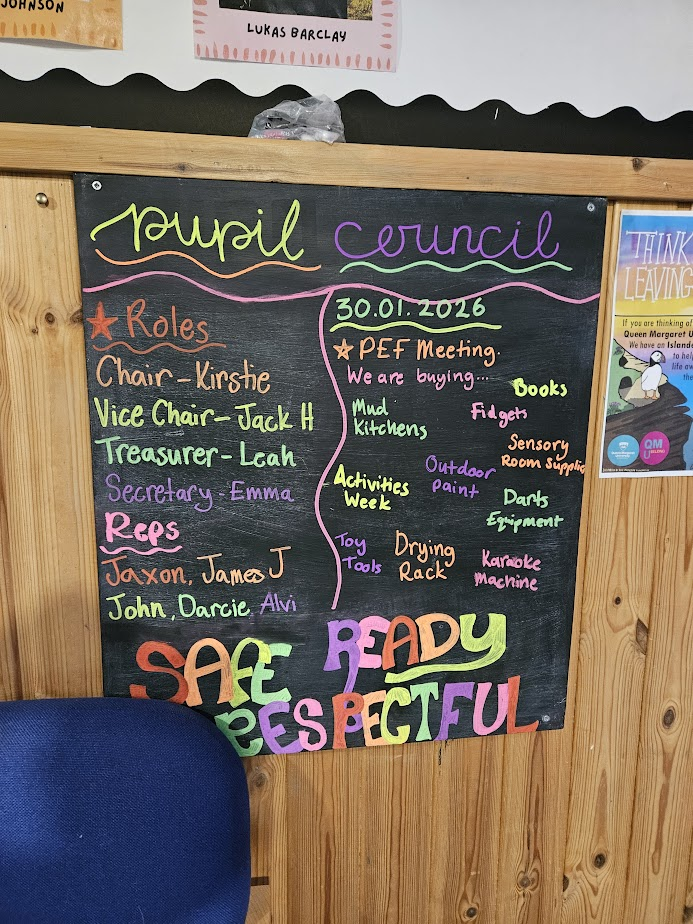 JOHNSON
LUKAS BARCLAY
pupil council
★ Roles
Chair - Kirstie
Vice Chair - Jack H
Treasurer - Leah
Secretary - Emma
Reps
Jaxon, James J
John, Darcie, Alvi
30.01.2026
☆ PEF Meeting.
We are buying...
Books
Mud
Kitchens
Fidgets
Sensory
Room Supplies
Outdoor
paint
Activities
Week
Darts
Equipment
Toy
Tools
Drying
Rack
Karaoke
machine
SAFE READY
RESPECTFUL
THINK
LEAVING
If you are thinking of
Queen Margaret U
We have an Islande
to help
life aw
the
QM
U